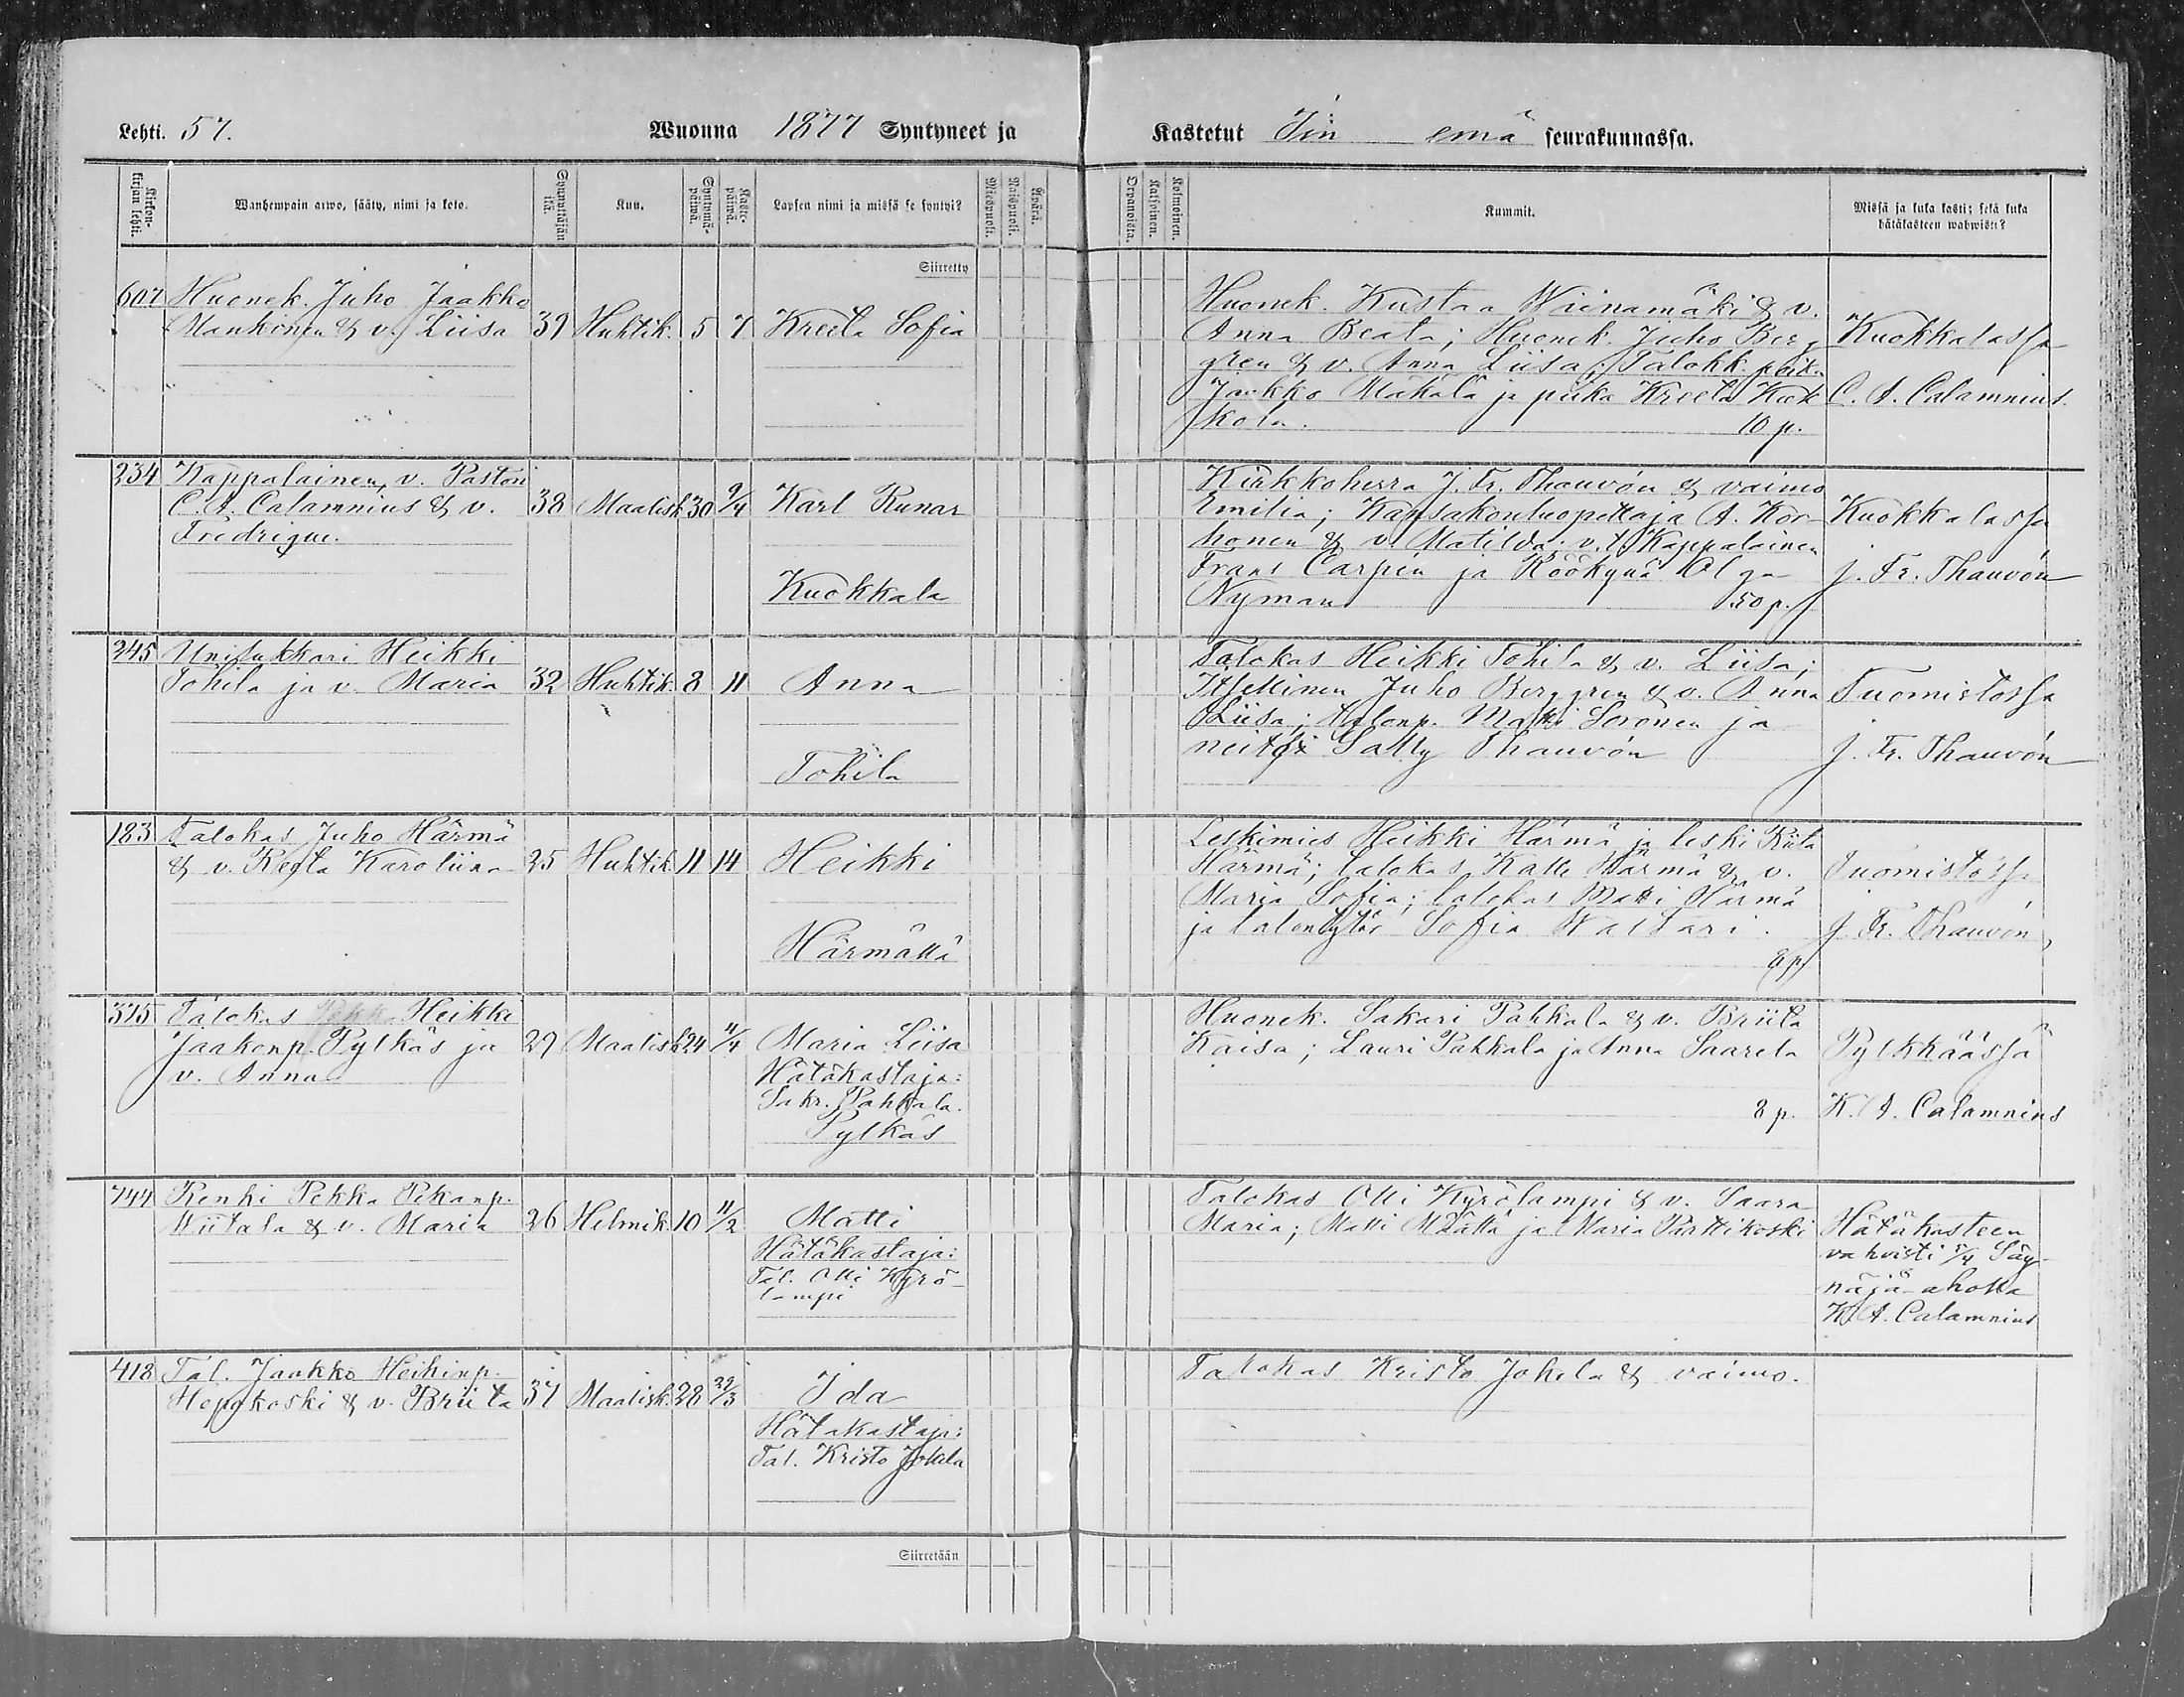 Lehti. 57.
Wuonna 1877 Syntyneet ja
Kastetut Iin emä seurakunnassa.
Kirkon-
kirjan lehti.
Wanhempain arwo, sääty, nimi ja koto.
Synnyttäjän
ikä.
Kuu.
Syntymä-
päiwä.
Kaste-
päiwä.
Lapsen nimi ja missä se syntyi?
Miespuoli.
Naispuoli.
Kummit.
Missä ja kuka kasti; sekä kuka
hätäkasteen wahwisti?
Kaksoinen.
Kolmoinen.
Siirretty
607 Huonek. Juho Jaakko
Mankinen & v. Liisa 39 Huhtik. 5 7 Kreeta Sofia
Huonek. Kustaa Wiinamäki & v.
Anna Beata; Huonek. Juho Berg
gren & v. Anna Liisa; Talokk. poik.
Jaakko Mäkälä ja piika Kreeta Kak
kola. 10 p.
Kuokkalassa
C. A. Calamnius.
234 Kappalainen, v. Pastori
C. A. Calamnius & v. 38 Maalisk 30 9/4 Karl Runar
Fredrique.
Kuokkala
Kirkkoherra J. Fr. Thauvón & vaimo
Emilia; Kansakouluopettaja A. Kor-
honen & v. Matilda; v.t. Kappalainen
Frans Carpén ja Röökynä Olga
Nyman 50 p.
Kuokkalassa
J. Fr. Thauvón
245 Unilukkari Heikki
Tohila ja v. Maria 32 Huhtik. 8 11 Anna
Tohila
Talokas Heikki Tohila & v. Liisa;
Itsellinen Juho Berggren & v. Anna
Liisa; talonp. Matti Soronen ja
neitsi Sally Thauvón
Tuomistossa
J. Fr. Thauvón
183 Talokas Juho Härmä
& v. Reeta Karoliina 25 Huhtik. 11 14 Heikki
Härmällä
Leskimies Heikki Härmä ja leski Riita
Härmä; talokas Kalle Härmä & v.
Maria Sofia; talokas Matti Härmä
ja talontytär Sofia Waltari.
8 p.
Tuomistossa
J. Fr. Thauvón
375 Talokas Heikki
Jaakonp. Pylkäs ja 29 Maalisk 24 11/4 Maria Liisa
v. Anna
Hätäkastaja:
Sakr. Pahkala.
Pylkäs
Huonek. Sakari Pahkala & v. Briita
Kaisa; Lauri Pahkala ja Anna Saarela
8 p.
Pylkkäässä
K. A. Calamnius
744 Renki Pekka Pekanp.
Wiitala & v. Maria 26 Helmik. 10 11/2 Matti
Hätäkastaja:
Tal. Olli Kyrö-
lampi
Talokas Olli Kyrölampi & v. Saara
Maria; Matti Määttä ja Maria Pärttikoski
Hätäkasteen
vahvisti 5/4 Säy-
näjä aholla
K. A. Calamnius
418 Tal. Jaakko Heikinp.
Hepokoski & v. Briita 37 Maalisk. 28 29/3 Ida
Hätäkastaja:
Tal. Kristo Jokela
Talokas Kristo Jokela & vaimo.
Siirretään